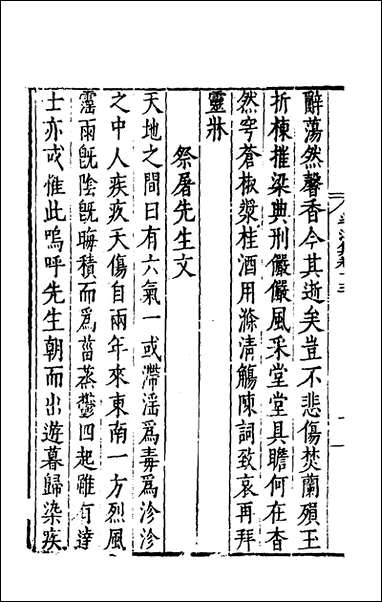 辭蕩然馨香今其逝矣豈不悲傷焚蘭殞玉
折棟摧梁典刑儼儼風采堂堂具瞻何在杳
然穹蒼椒漿桂酒用滌清觴陳詞致哀再拜
靈牀
祭屠先生文
天地之間日有六氣一或滯滛爲毒爲沴沴
之中人疾疢夭傷自兩年來東南一方烈風
霪雨旣陰旣晦積而爲菑蒸鬱四起雖有達
士亦或惟此嗚呼先生朝而出遊暮歸染疾